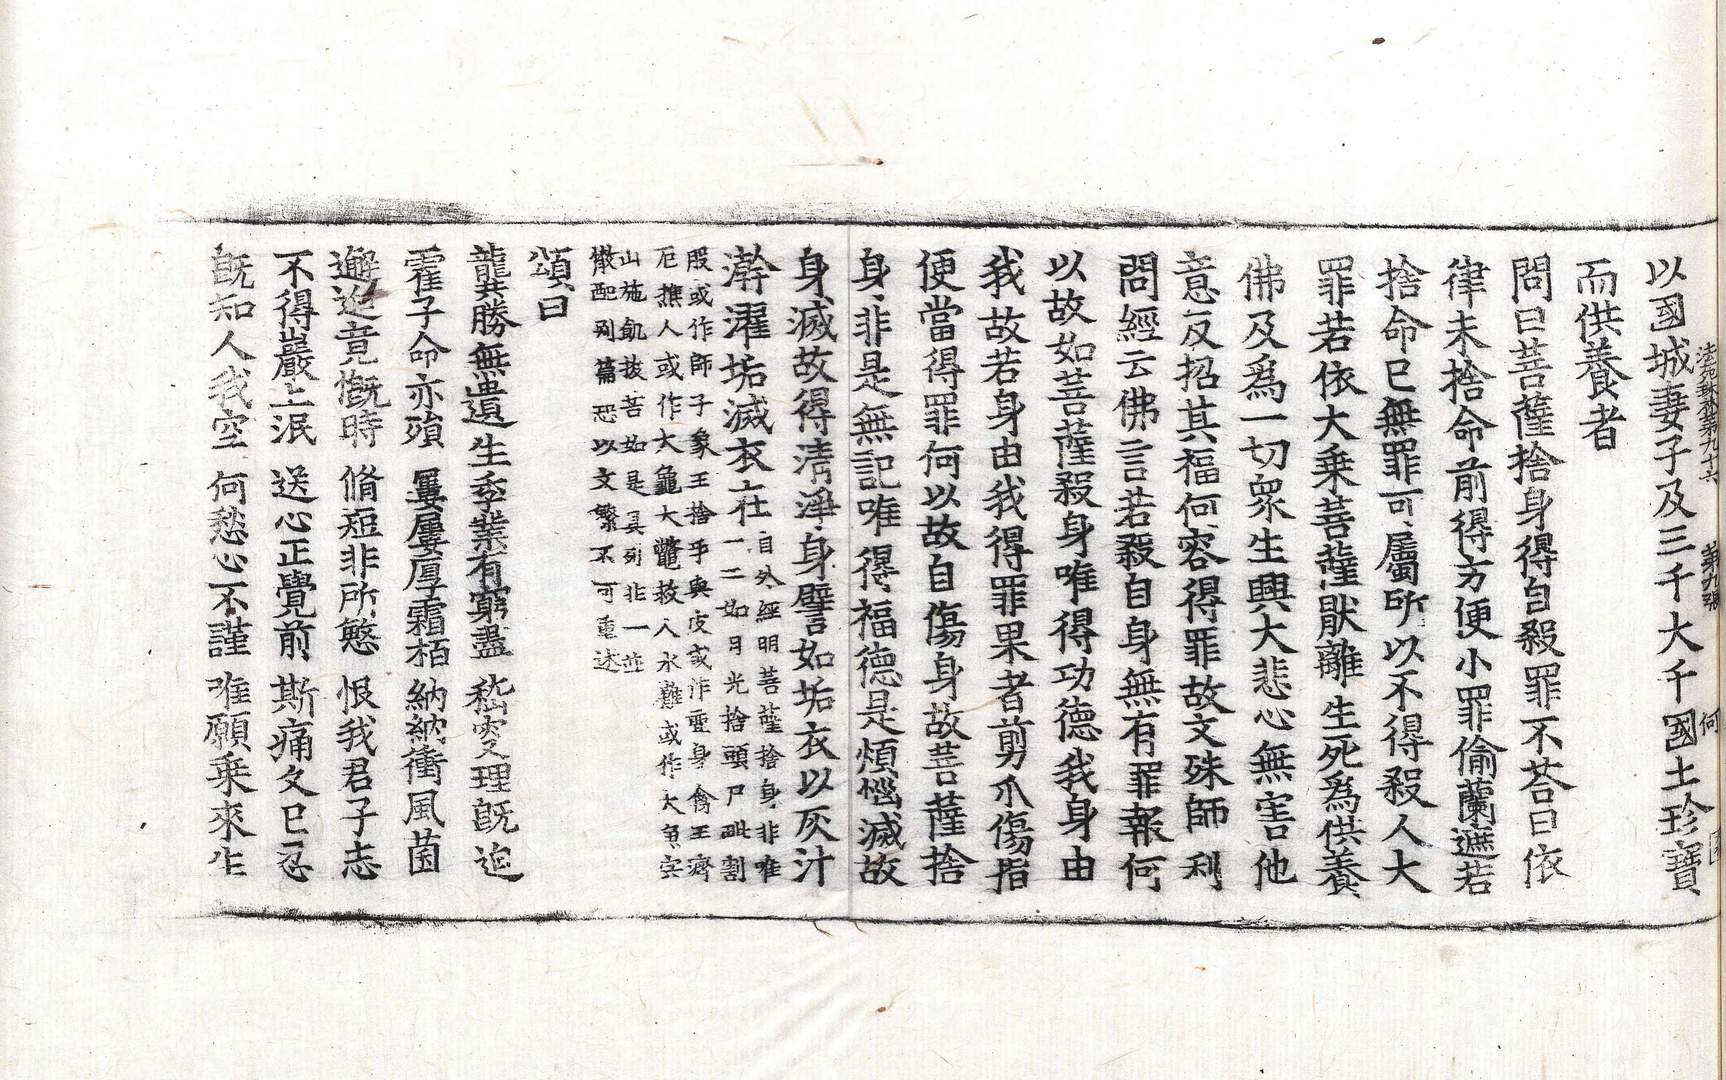 法苑珠林第九十六 第九張 何
以國城妻子及三千大千國土珍寶
而供養者
問曰菩薩捨身得自殺罪不荅曰依
律未捨命前得方便小罪偷蘭遮若
捨命已無罪可屬所以不得殺人大
罪若依大乘菩薩猒離生死爲供養
佛及爲一切衆生興大悲心無害他
意反招其福何容得罪故文殊師利
問經云佛言若殺自身無有罪報何
以故如菩薩殺身唯得功德我身由
我故若身由我得罪果者剪爪傷指
便當得罪何以故自傷身故菩薩捨
身非是無記唯得福德是煩惱滅故
身滅故得清淨身譬如垢衣以灰汁
澣濯垢滅衣在自外經明菩薩捨身非唯
一二如月光捨頭尸毗割
股或作師子象王捨乎與皮或作雹身禽王濟
厄撫人或作大龜大鼈救人水難或作大魚宍
山施飢拔苦如是眞列非一並
散配列篇恐以文繁不可重述
頌曰
龔勝無遺生 季業有窮盡 嵇叟理旣迫
霍子命亦殞 屢屢厚霜栢 納納衝風菌
邂逅竟慨時 脩短非所慜 恨我君子志
不得巖上泯 送心正覺前 斯痛久已忍
旣知人我空 何愁心不謹 唯願乘來生